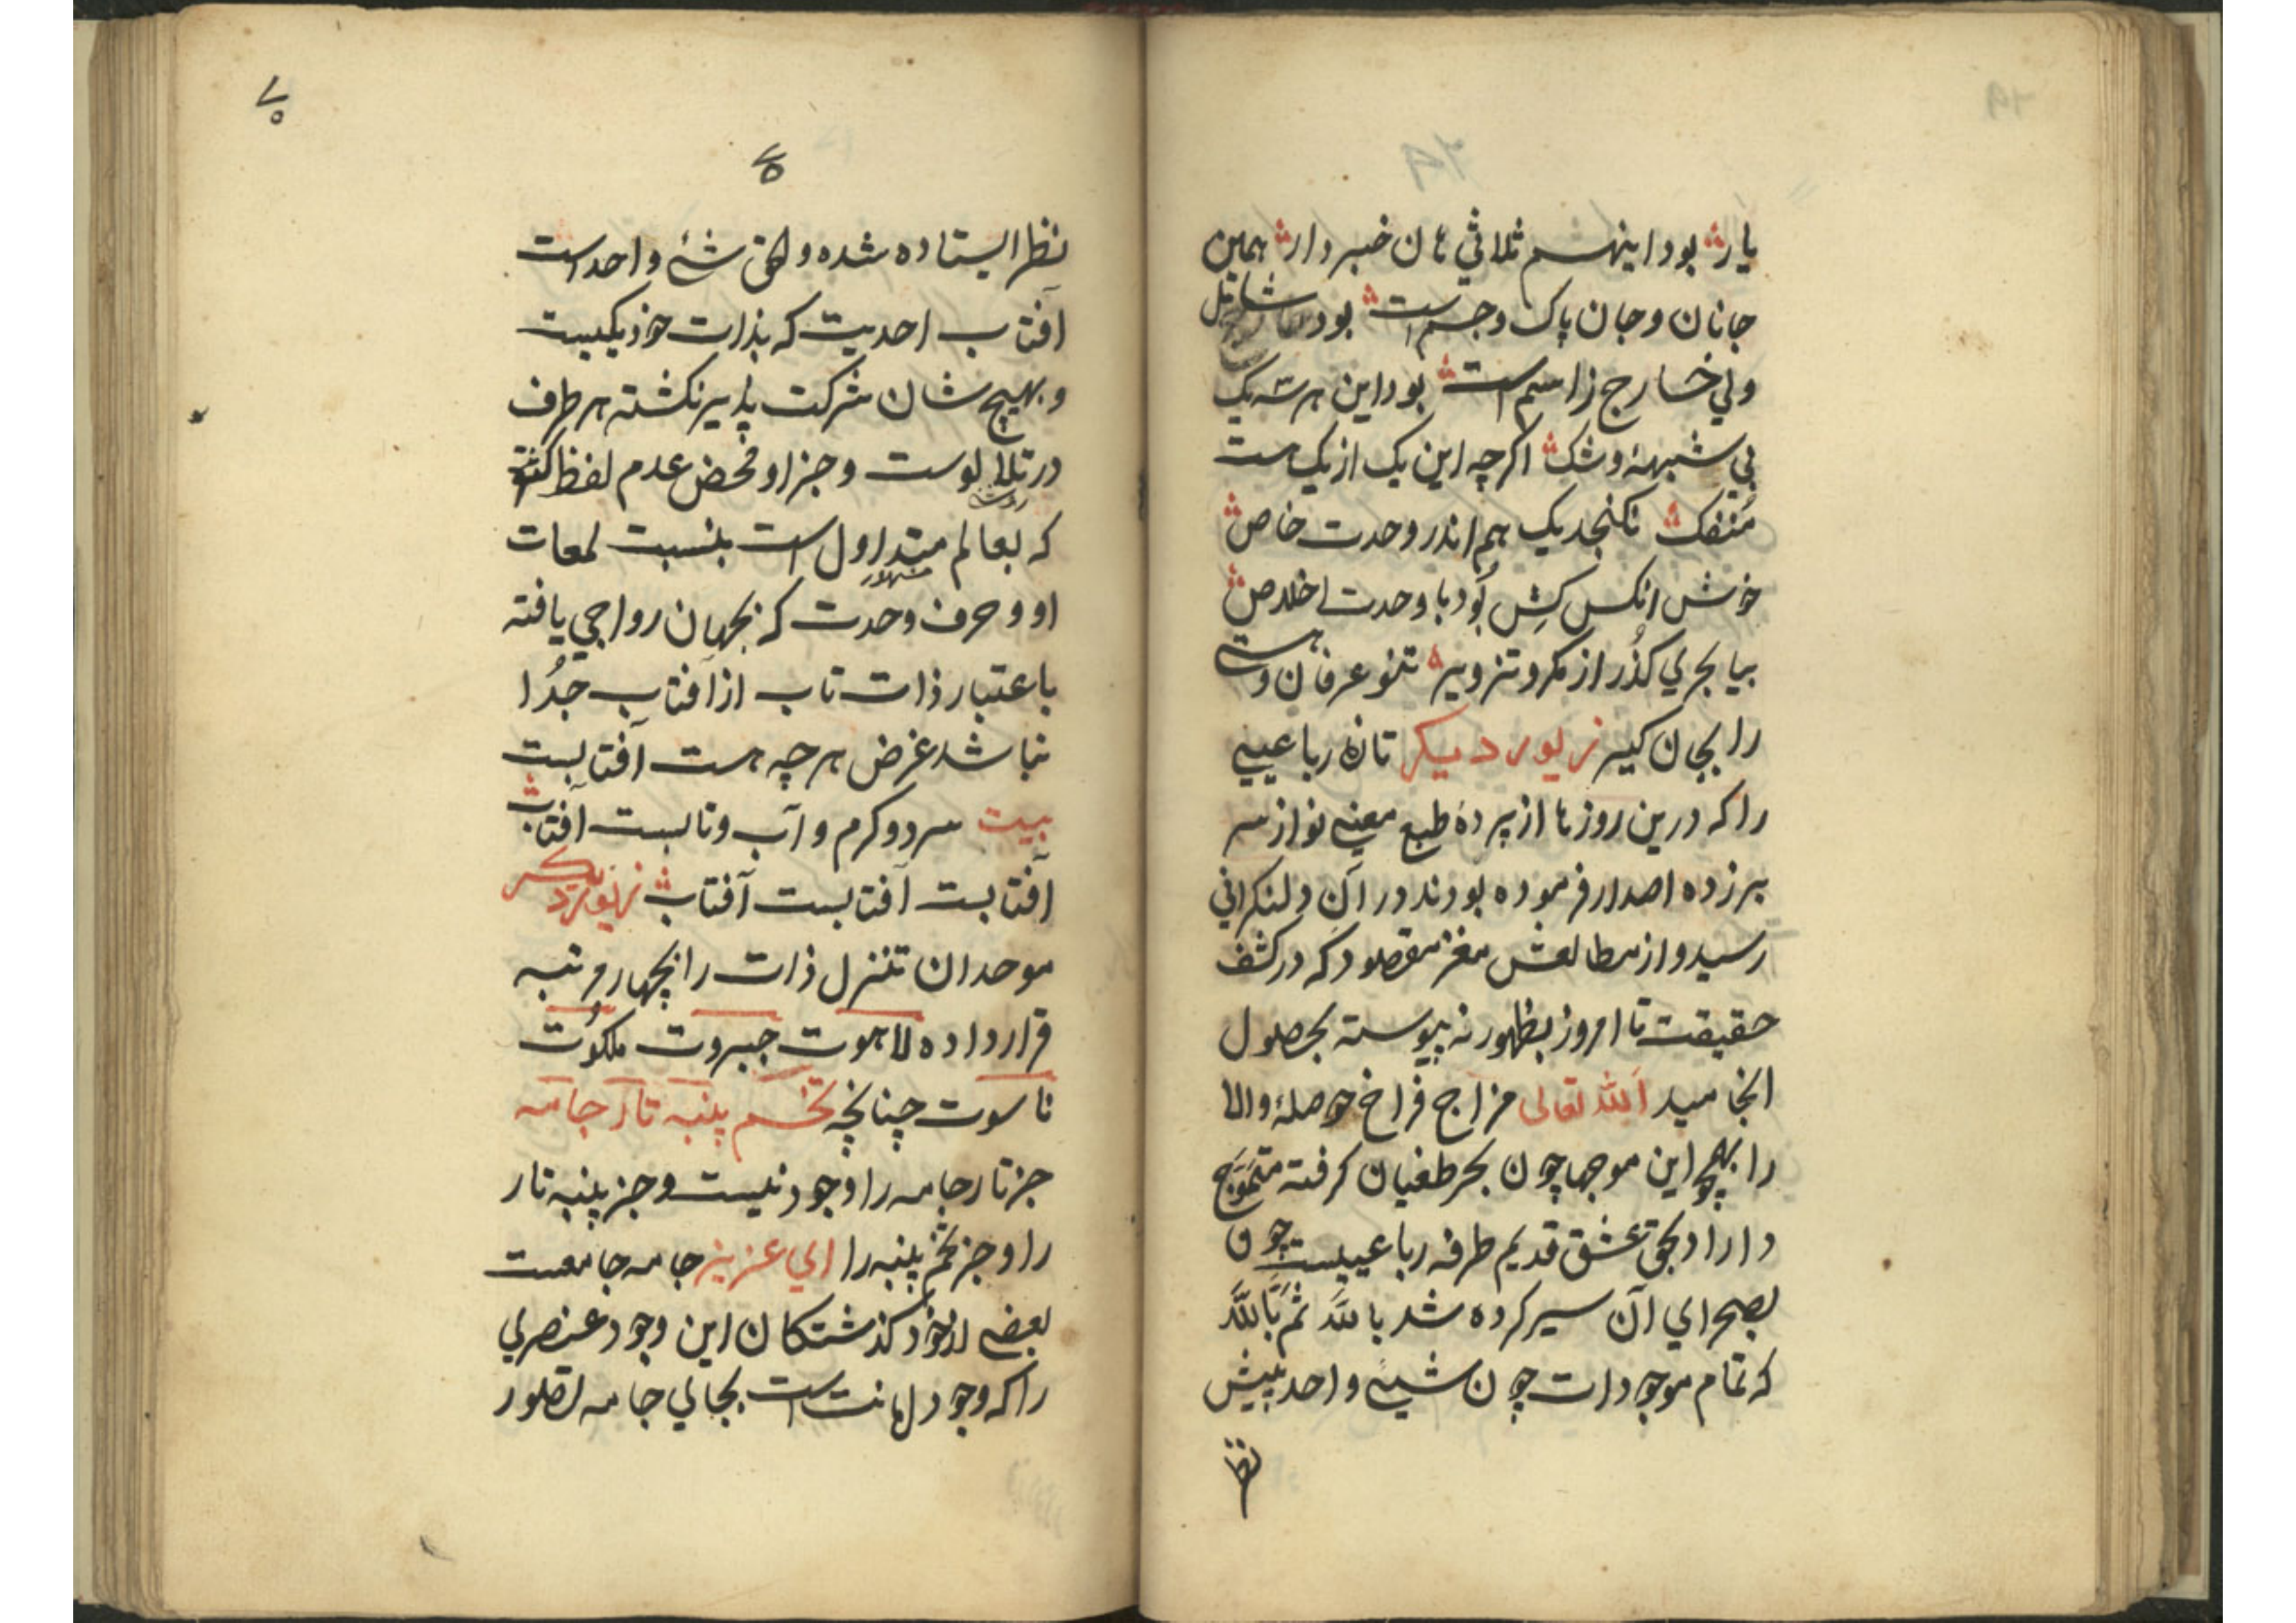 یار بود اینهم ثلاثی هان خبردار همین
جانان و جان پاک و جسم است بود شامل
ولی خارج ز اسم است بود این هر سه یک
بی شبههٔ و شک اگرچه این یک از یک هست
منفک نکنجد یک هم اندر وحدت خاص
خوش انکس کش بود با وحدت اخلاص
بیا بحری گذر از مکر و تزویر تنو عرفان و هستی
را بجان گیر زیور دیگر تازه رباعییی
را که درین روزها از پردهٔ طبع معنی نواز سر
برزده اصدار فرموده بودند در آن دلنکرانی
رسید و از مطالعش مغز مقصود که در کشف
حقیقت تا امروز بظهور نه پیوسته بحصول
انجامید الله تعالی مزاج فراخ حوصلهٔ والا
را بهیچو این موجها چون بحر طغیان گرفته متموج
داراد بحق عشق قدیم طرفه رباعییست چون
بصحرای آن سیر کرده شد بالله ثم بالله
که تمام موجودات چون شییٔ واحد پیش
نظر
۷۰
۷۰
نظر ایستاده شده و الحق شیٔ واحد است
آفتاب احدیت که بذات خود یکیست
و بهیچ شان شرکت پذیر نکشته هر طرف
در تلالوست و جز او محض عدم لفظ کثرت
که بعالم متداول است بنسبت لمعات
مشهور
او و حرف وحدت که بجهان رواجی یافته
باعتبار ذات تاب از آفتاب جدا
نباشد غرض هر چه هست آفتابست
بیت سرد و گرم و آب و تابست آفتاب
آفتابست آفتابست آفتاب زیور دیگر
موحدان تنزل ذات را بچهار مرتبه
قرار داده لاهوت جبروت ملکوت
ناسوت چنانچه تخم پنبه تار جامه
جز تار جامه را وجود نیست و جز پنبه تار
را و جز تخم پنبه را ای عزیز جامه جامعست
بعضی از خود گذشتگان این وجود عنصری
را که وجود امانت است بجای جامه تصور